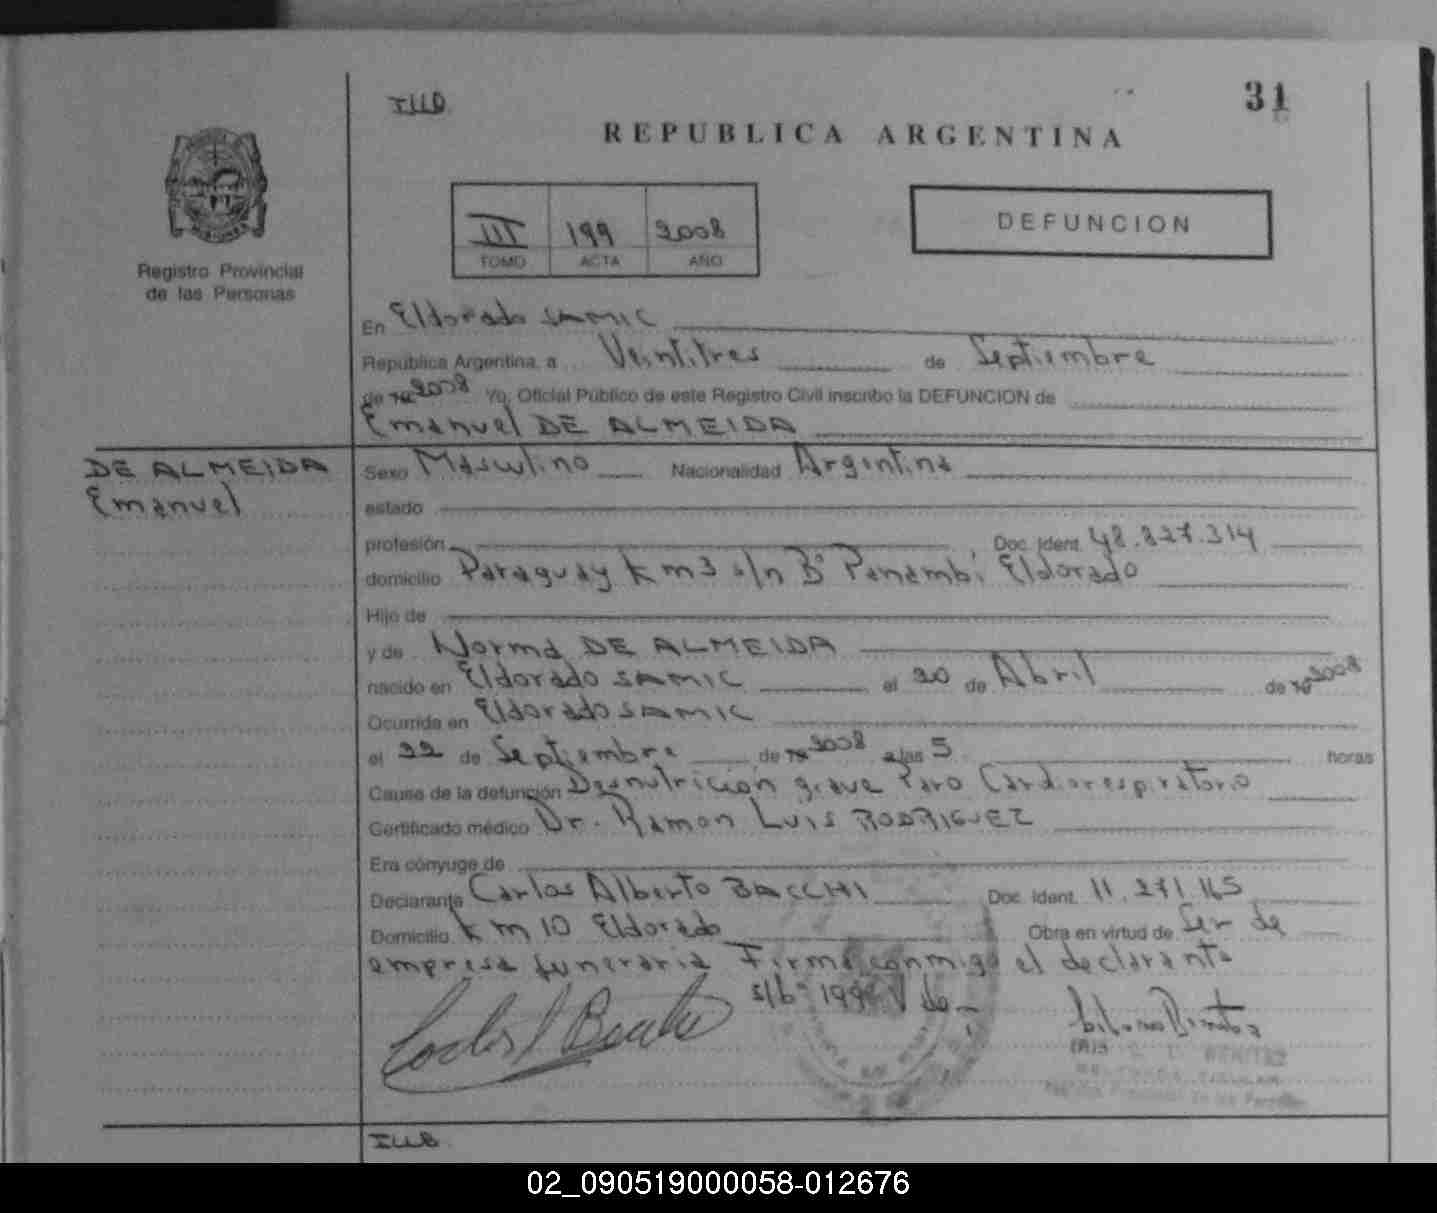 31
REPUBLICA ARGENTINA
III 199 2008
TOMO ACTA AÑO
DEFUNCION
Registro Provincial
de las Personas
En Eldorado SAMIC
República Argentina, a Veintitres de Septiembre
de 2008 Yo, Oficial Público de este Registro Civil inscribo la DEFUNCION de
Emanuel DE ALMEIDA
DE ALMEIDA
Emanuel
Sexo Masculino Nacionalidad Argentina
estado
profesión Doc. Ident. 48.827.314
domicilio Paraguay km3 s/n Bº Panambi Eldorado
Hijo de
y de Norma DE ALMEIDA
nacido en Eldorado SAMIC el 20 de Abril de 2008
Ocurrida en Eldorado SAMIC
el 22 de Septiembre de 2008 a las 5 horas
Causa de la defunción Desnutricion grave Paro Cardiorespiratorio
Certificado médico Dr. Ramon Luis RODRIGUEZ
Era cónyuge de
Declarante Carlos Alberto BACCHI Doc. Ident. 11.271.165
Domicilio km 10 Eldorado Obra en virtud de Ser de
empresa funeraria Firma conmigo el declarante
02_090519000058-012676